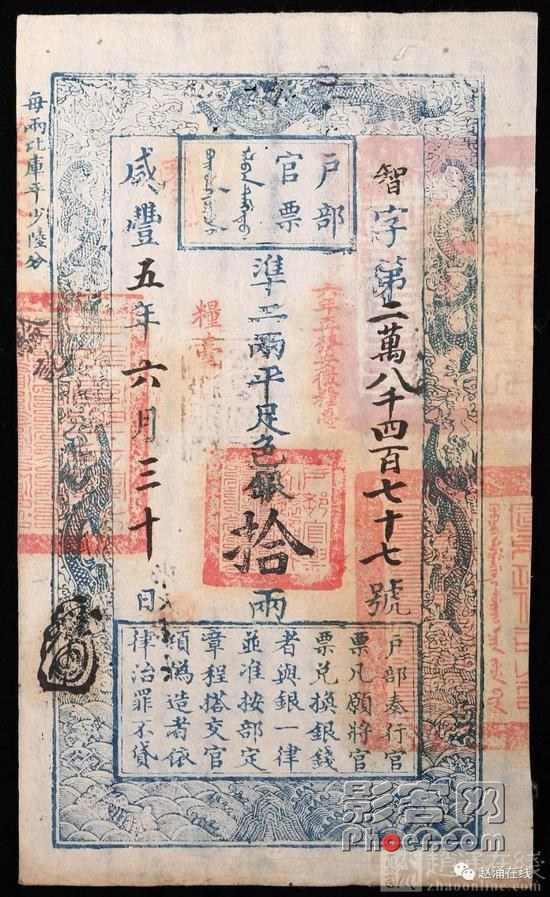 戶部
官票
智字第二萬八千四百七十七號
準二兩平足色銀拾兩
咸豐五年六月三十日
每兩比庫平少陸分
糧臺
戶部奏行官
票凡願將官
票兌換銀錢
者與銀一律
並准按部定
章程搭交官
項偽造者依
律治罪不貸
影客网
Phoer.com
赵涌在线
赵涌在线
zhaoonline.com